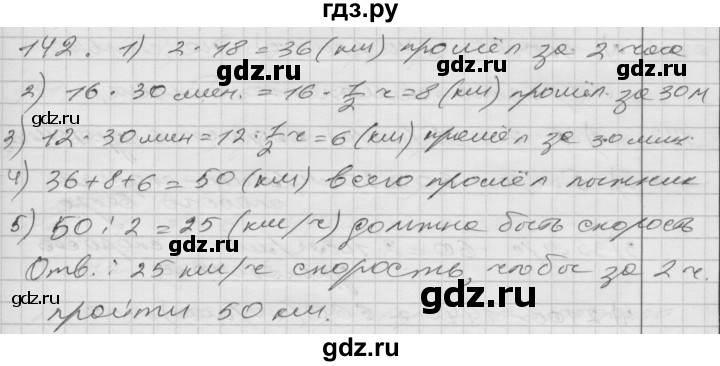 гдз.ру
142. 1) 2 · 18 = 36 (км) прошёл за 2 часа
gdz.ru gdz.ru
2) 16 · 30 мин. = 16 · 1/2 ч = 8 (км) прошёл за 30 м
gdz.ru
3) 12 · 30 мин = 12 · 1/2 ч = 6 (км) прошёл за 30 мин.
gdz.ru gdz.ru
4) 36 + 8 + 6 = 50 (км) всего прошёл лыжник
gdz.ru
5) 50 : 2 = 25 (км/ч) должна быть скорость
gdz.ru gdz.ru
Отв.: 25 км/ч скорость, чтобы за 2 ч.
gdz.ru
пройти 50 км.
gdz.ru